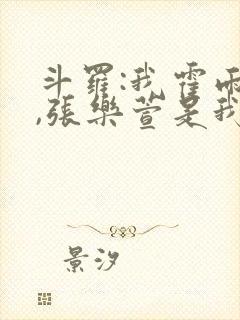 斗羅:我霍雨
,張樂萱是我
景汐